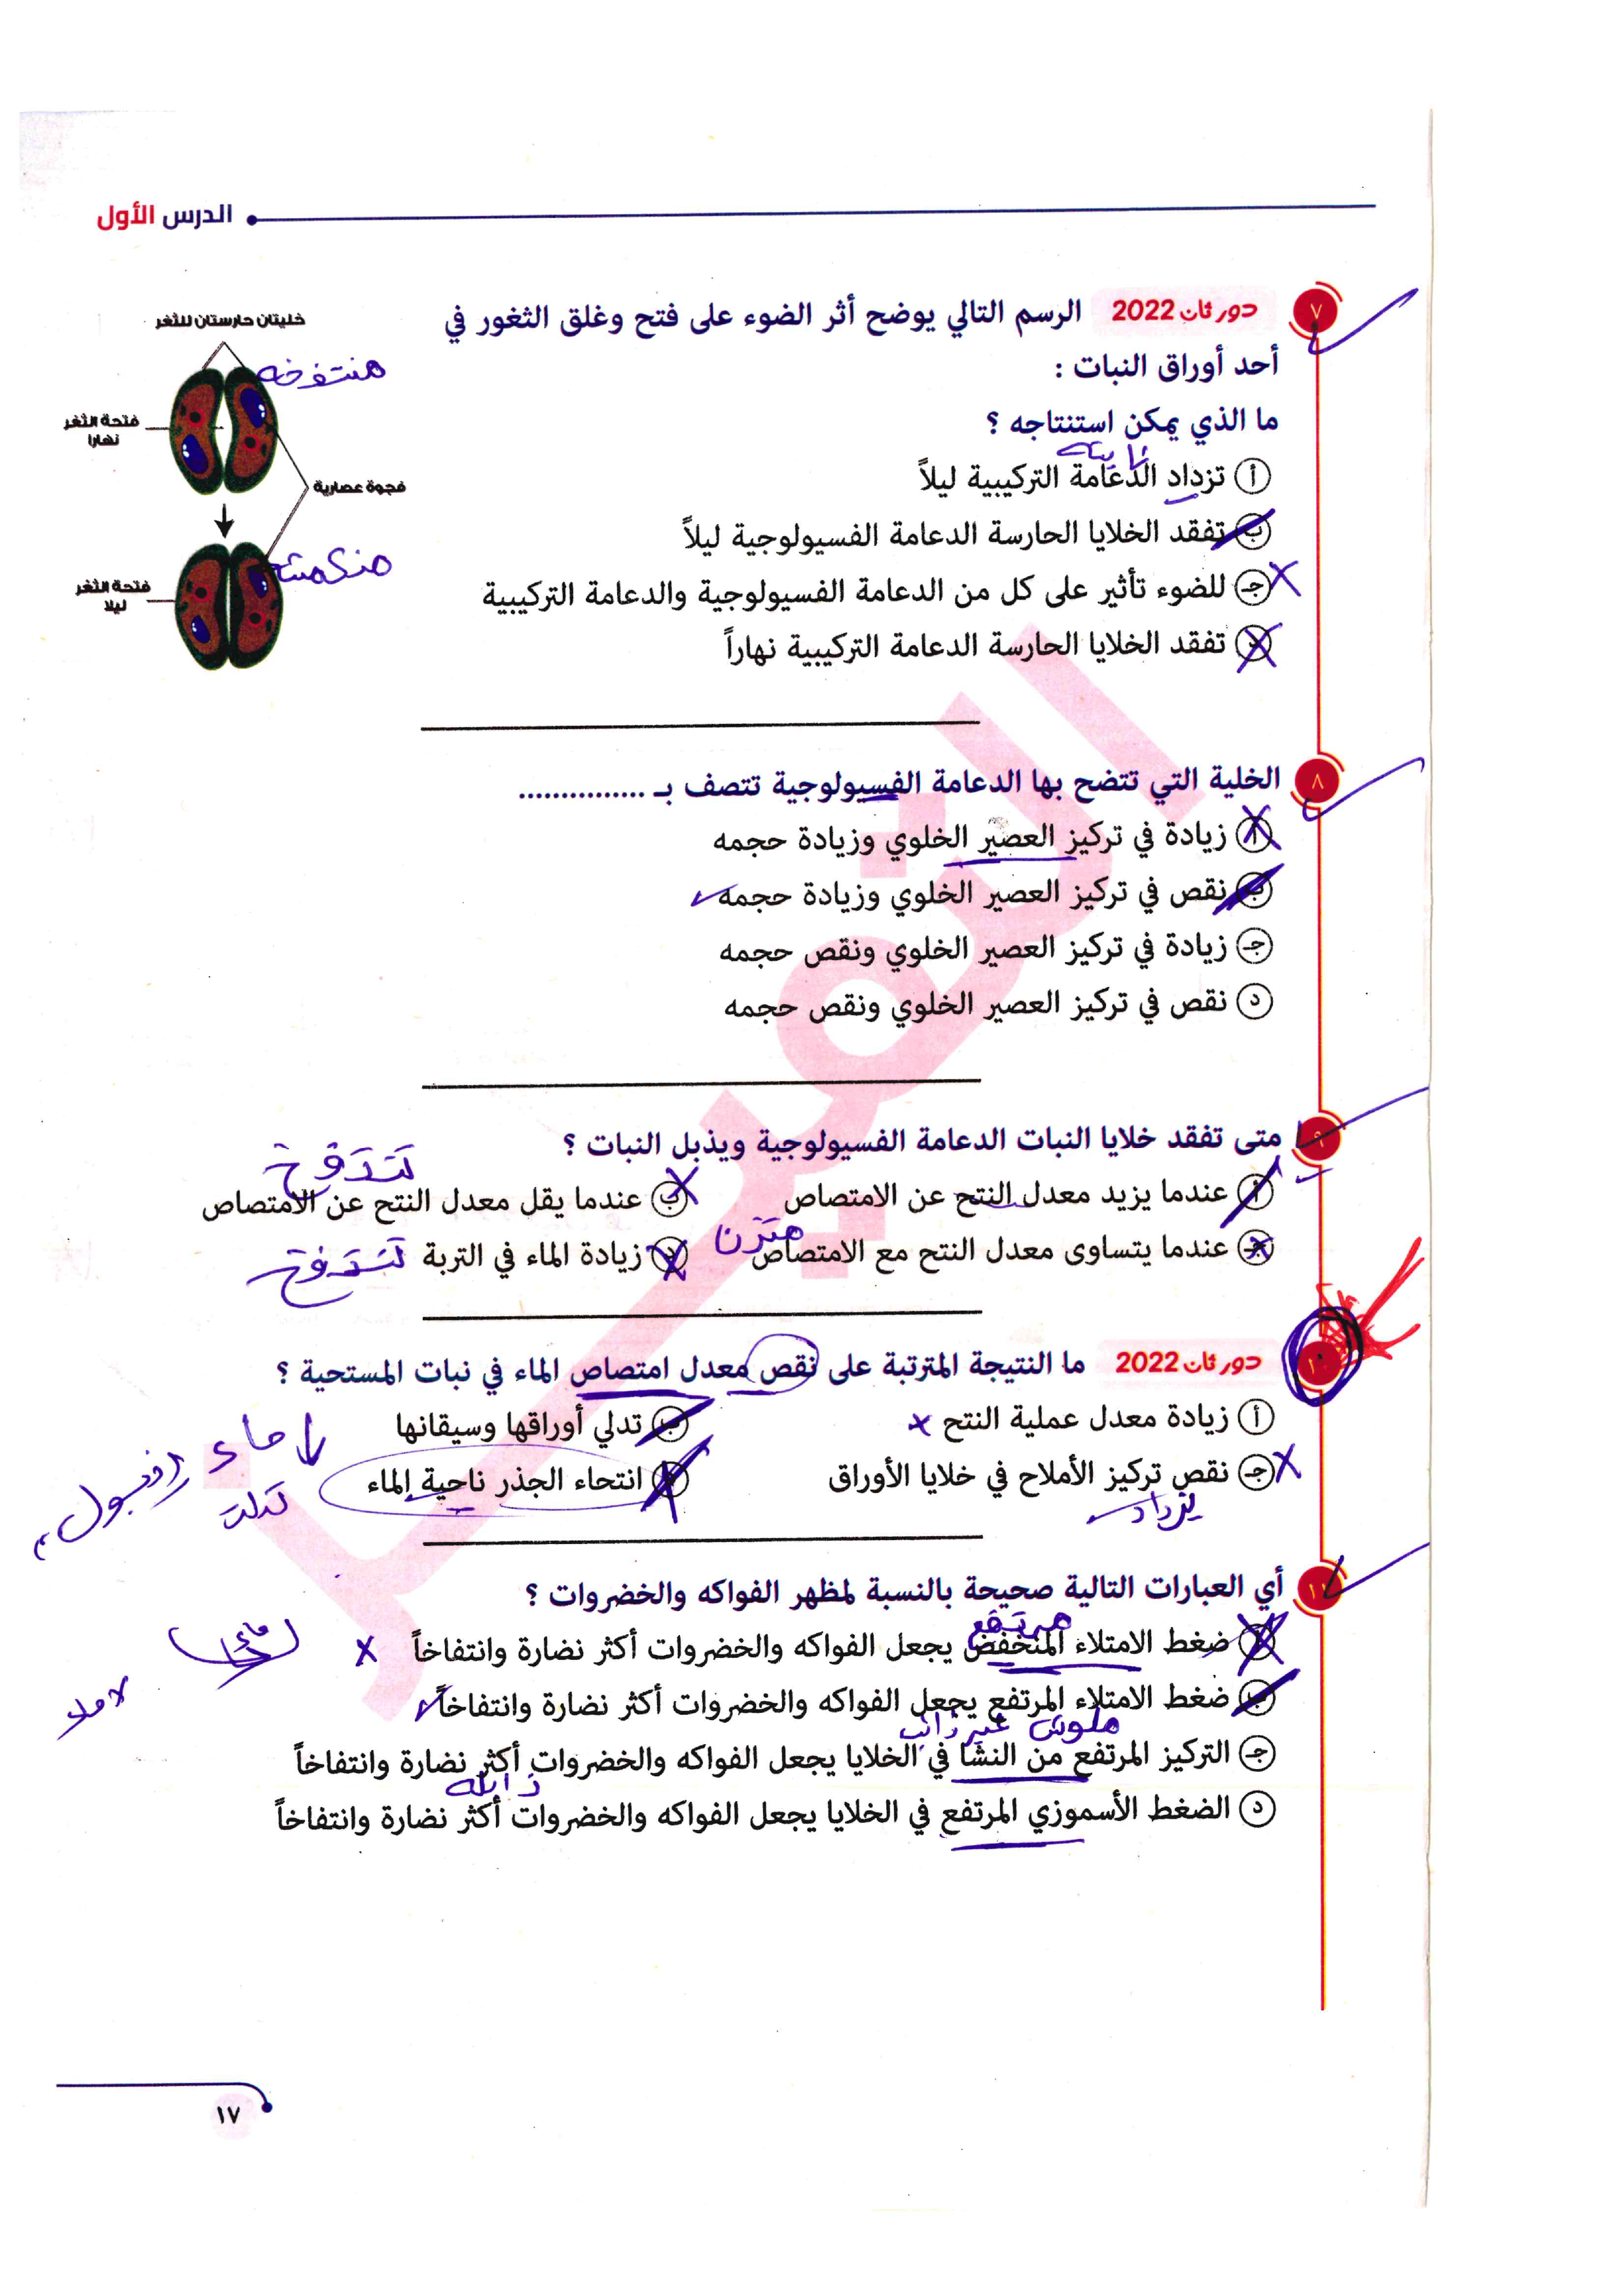 الدرس الأول
٧ دور ثان 2022 الرسم التالي يوضح أثر الضوء على فتح وغلق الثغور في
أحد أوراق النبات :
ما الذي يمكن استنتاجه ؟
ثابته
أ تزداد الدعامة التركيبية ليلاً
ب تفقد الخلايا الحارسة الدعامة الفسيولوجية ليلاً
جـ للضوء تأثير على كل من الدعامة الفسيولوجية والدعامة التركيبية
د تفقد الخلايا الحارسة الدعامة التركيبية نهاراً
خليتان حارستان للثغر
منتفخه
فتحة الثغر
نهارا
فجوة عصارية
منكمشه
فتحة الثغر
ليلا
٨ الخلية التي تتضح بها الدعامة الفسيولوجية تتصف بـ ...............
أ زيادة في تركيز العصير الخلوي وزيادة حجمه
ب نقص في تركيز العصير الخلوي وزيادة حجمه
جـ زيادة في تركيز العصير الخلوي ونقص حجمه
د نقص في تركيز العصير الخلوي ونقص حجمه
٩ متى تفقد خلايا النبات الدعامة الفسيولوجية ويذبل النبات ؟
أ عندما يزيد معدل النتح عن الامتصاص
ب عندما يقل معدل النتح عن الامتصاص
متزن
جـ عندما يتساوى معدل النتح مع الامتصاص
د زيادة الماء في التربة
١٠ دور ثان 2022 ما النتيجة المترتبة على نقص معدل امتصاص الماء في نبات المستحية ؟
أ زيادة معدل عملية النتح
ب تدلي أوراقها وسيقانها
جـ نقص تركيز الأملاح في خلايا الأوراق
د انتحاء الجذر ناحية الماء
يزداد
ماء
تدلت
١١ أي العبارات التالية صحيحة بالنسبة لمظهر الفواكه والخضروات ؟
مرتفع
أ ضغط الامتلاء المنخفض يجعل الفواكه والخضروات أكثر نضارة وانتفاخاً
ب ضغط الامتلاء المرتفع يجعل الفواكه والخضروات أكثر نضارة وانتفاخاً
ملوش غير ذائب
جـ التركيز المرتفع من النشا في الخلايا يجعل الفواكه والخضروات أكثر نضارة وانتفاخاً
ذابله
د الضغط الأسموزي المرتفع في الخلايا يجعل الفواكه والخضروات أكثر نضارة وانتفاخاً
١٧